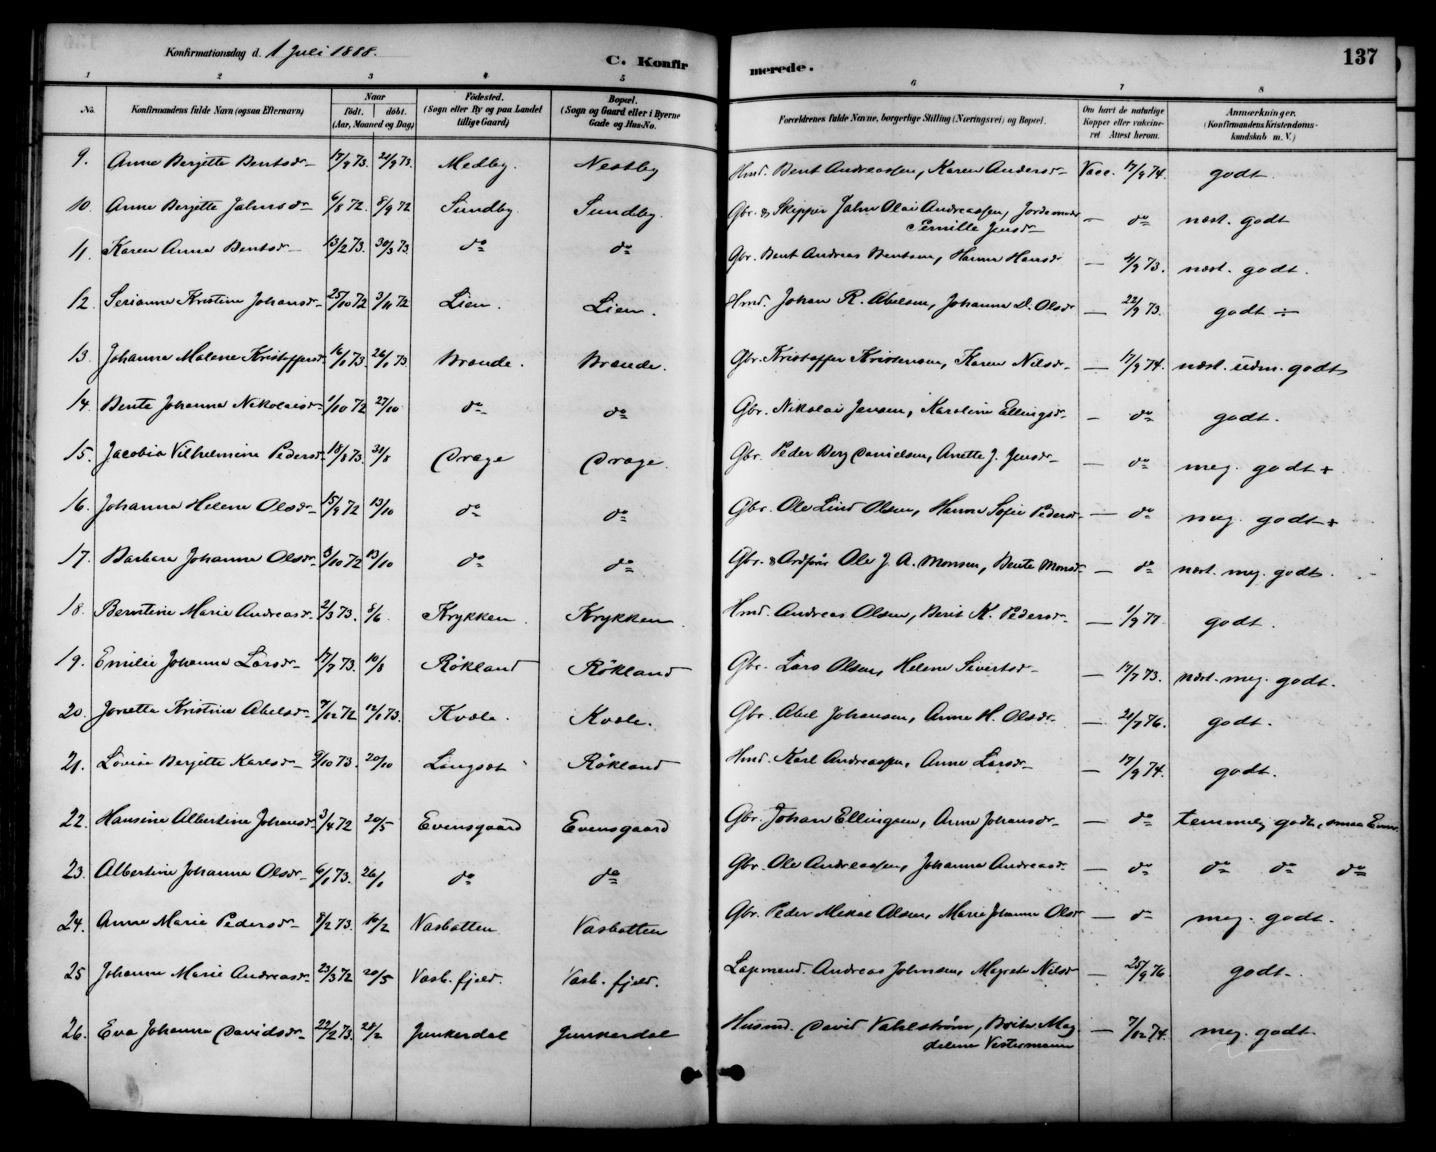 Konfirmationsdag d. 1 Juli 1888.
C. Konfirmerede.
137
1 2 3 4 5 6 7 8
No. Konfirmandens fulde Navn (ogsaa Efternavn) Naar født. døbt. (Aar, Maaned og Dag) Fødested. (Sogn eller By og paa Landet tillige Gaard) Bopæl. (Sogn og Gaard eller i Byerne Gade og Hus-No. Forældrenes fulde Navne, borgerlige Stilling (Næringsvei) og Bopæl. Om havt de naturlige Kopper eller vaccineret. Attest herom. Anmærkninger. (Konfirmandens Kristendomskundskab m. V.)
9. Anna Bergitte Bentsdr 17/9 73. 21/9 73. Medby. Nestby Hmd. Bent Andreassen, Karen Andersdr Vacc. 17/9 74. godt
10. Anne Bergitte Jahnsdr 6/8 72. 8/9 72 Sundby. Sundby. Gbr. & Skipper Jahn Olai Andreassen, Jordemoder Pernille Jensdr — do næst. godt
11. Karen Anna Bentsdr 13/2 73. 30/3 73 do do Gbr. Bent Andreas Bentsen, Hanna Hansdr — 4/9 73. næst. godt.
12. Serianna Kristine Johansdr 25/10 72 3/11 72 Lien. Lien. Hmd. Johan R. Abelsen, Johanna D. Olsdr — 22/9 73. godt ÷
13. Johanna Malene Kristoffersdr 16/1 73. 26/1 73 Brænde. Brænde. Gbr. Kristoffer Kristensen, Karen Nilsdr — 17/9 74. næst. udm. godt
14. Bente Johanna Nikolaisdr 1/10 72 27/10 do do Gbr. Nikolai Jensen, Karoline Ellingsdr — do godt.
15. Jacobia Vilhelmine Pedersdr 18/8 73. 30/8 Drage Drage. Gbr. Peder Berg Danielsen, Anette J. Jensdr — do meg. godt +
16. Johanna Helene Olsdr 15/9 72 13/10 do do Gbr. Ole Lind Olsen, Hanna Sofie Pedersdr — do meg. godt +
17. Barbara Johanna Olsdr 3/10 72 13/10 do do Gbr. & Ordfører Ole J. A. Monsen, Bente Monsdr — do næst. meg. godt.
18. Berntine Marie Andreasdr 2/3 73. 8/6 Krykken Krykken Hmd. Andreas Olsen, Berit K. Pedersdr — 1/9 77 godt.
19. Emilie Johanna Larsdr 17/7 73. 10/8 Røkland Røkland Gbr. Lars Olsen, Helene Sivertsdr — 17/7 73. næst. meg. godt.
20. Jonetta Kristine Abelsdr 7/12 72 12/1 73. Kvæle. Kvæle. Gbr. Abel Johansen, Anne H. Olsdr — 20/7 76. godt.
21. Lovise Bergitte Karlsdr 9/10 73. 20/10 Lingset Røkland Hmd. Karl Andreassen, Anne Larsdr — 17/9 74. godt.
22. Hansine Albertine Johansdr 3/4 72 20/5 Evensgaard Evensgaard Gbr. Johan Ellingsen, Anne Johansdr — do temmelig godt, smaa Evner
23. Albertine Johanna Olsdr 6/1 73. 26/1 do do Gbr. Ole Andreassen, Johanna Andreasdr — do do do do
24. Anne Marie Pedersdr 8/2 73. 16/2 Vasbotten Vasbotten Gbr. Peder Mikal Olsen, Marie Johanna Olsdr — do meg. godt.
25 Johanna Marie Andreasdr 23/3 72 20/5 Vasb. fjeld. Vasb. fjeld. Lapmand. Andreas Johnsen, Magrete Nilsdr — 25/9 76 godt.
26. Eva Johanna Davidsdr 22/2 73. 28/2 Junkerdal Junkerdal Husmd. David Vahlstrøm, Brita Magdelena Vestermann — 7/12 74. meg. godt